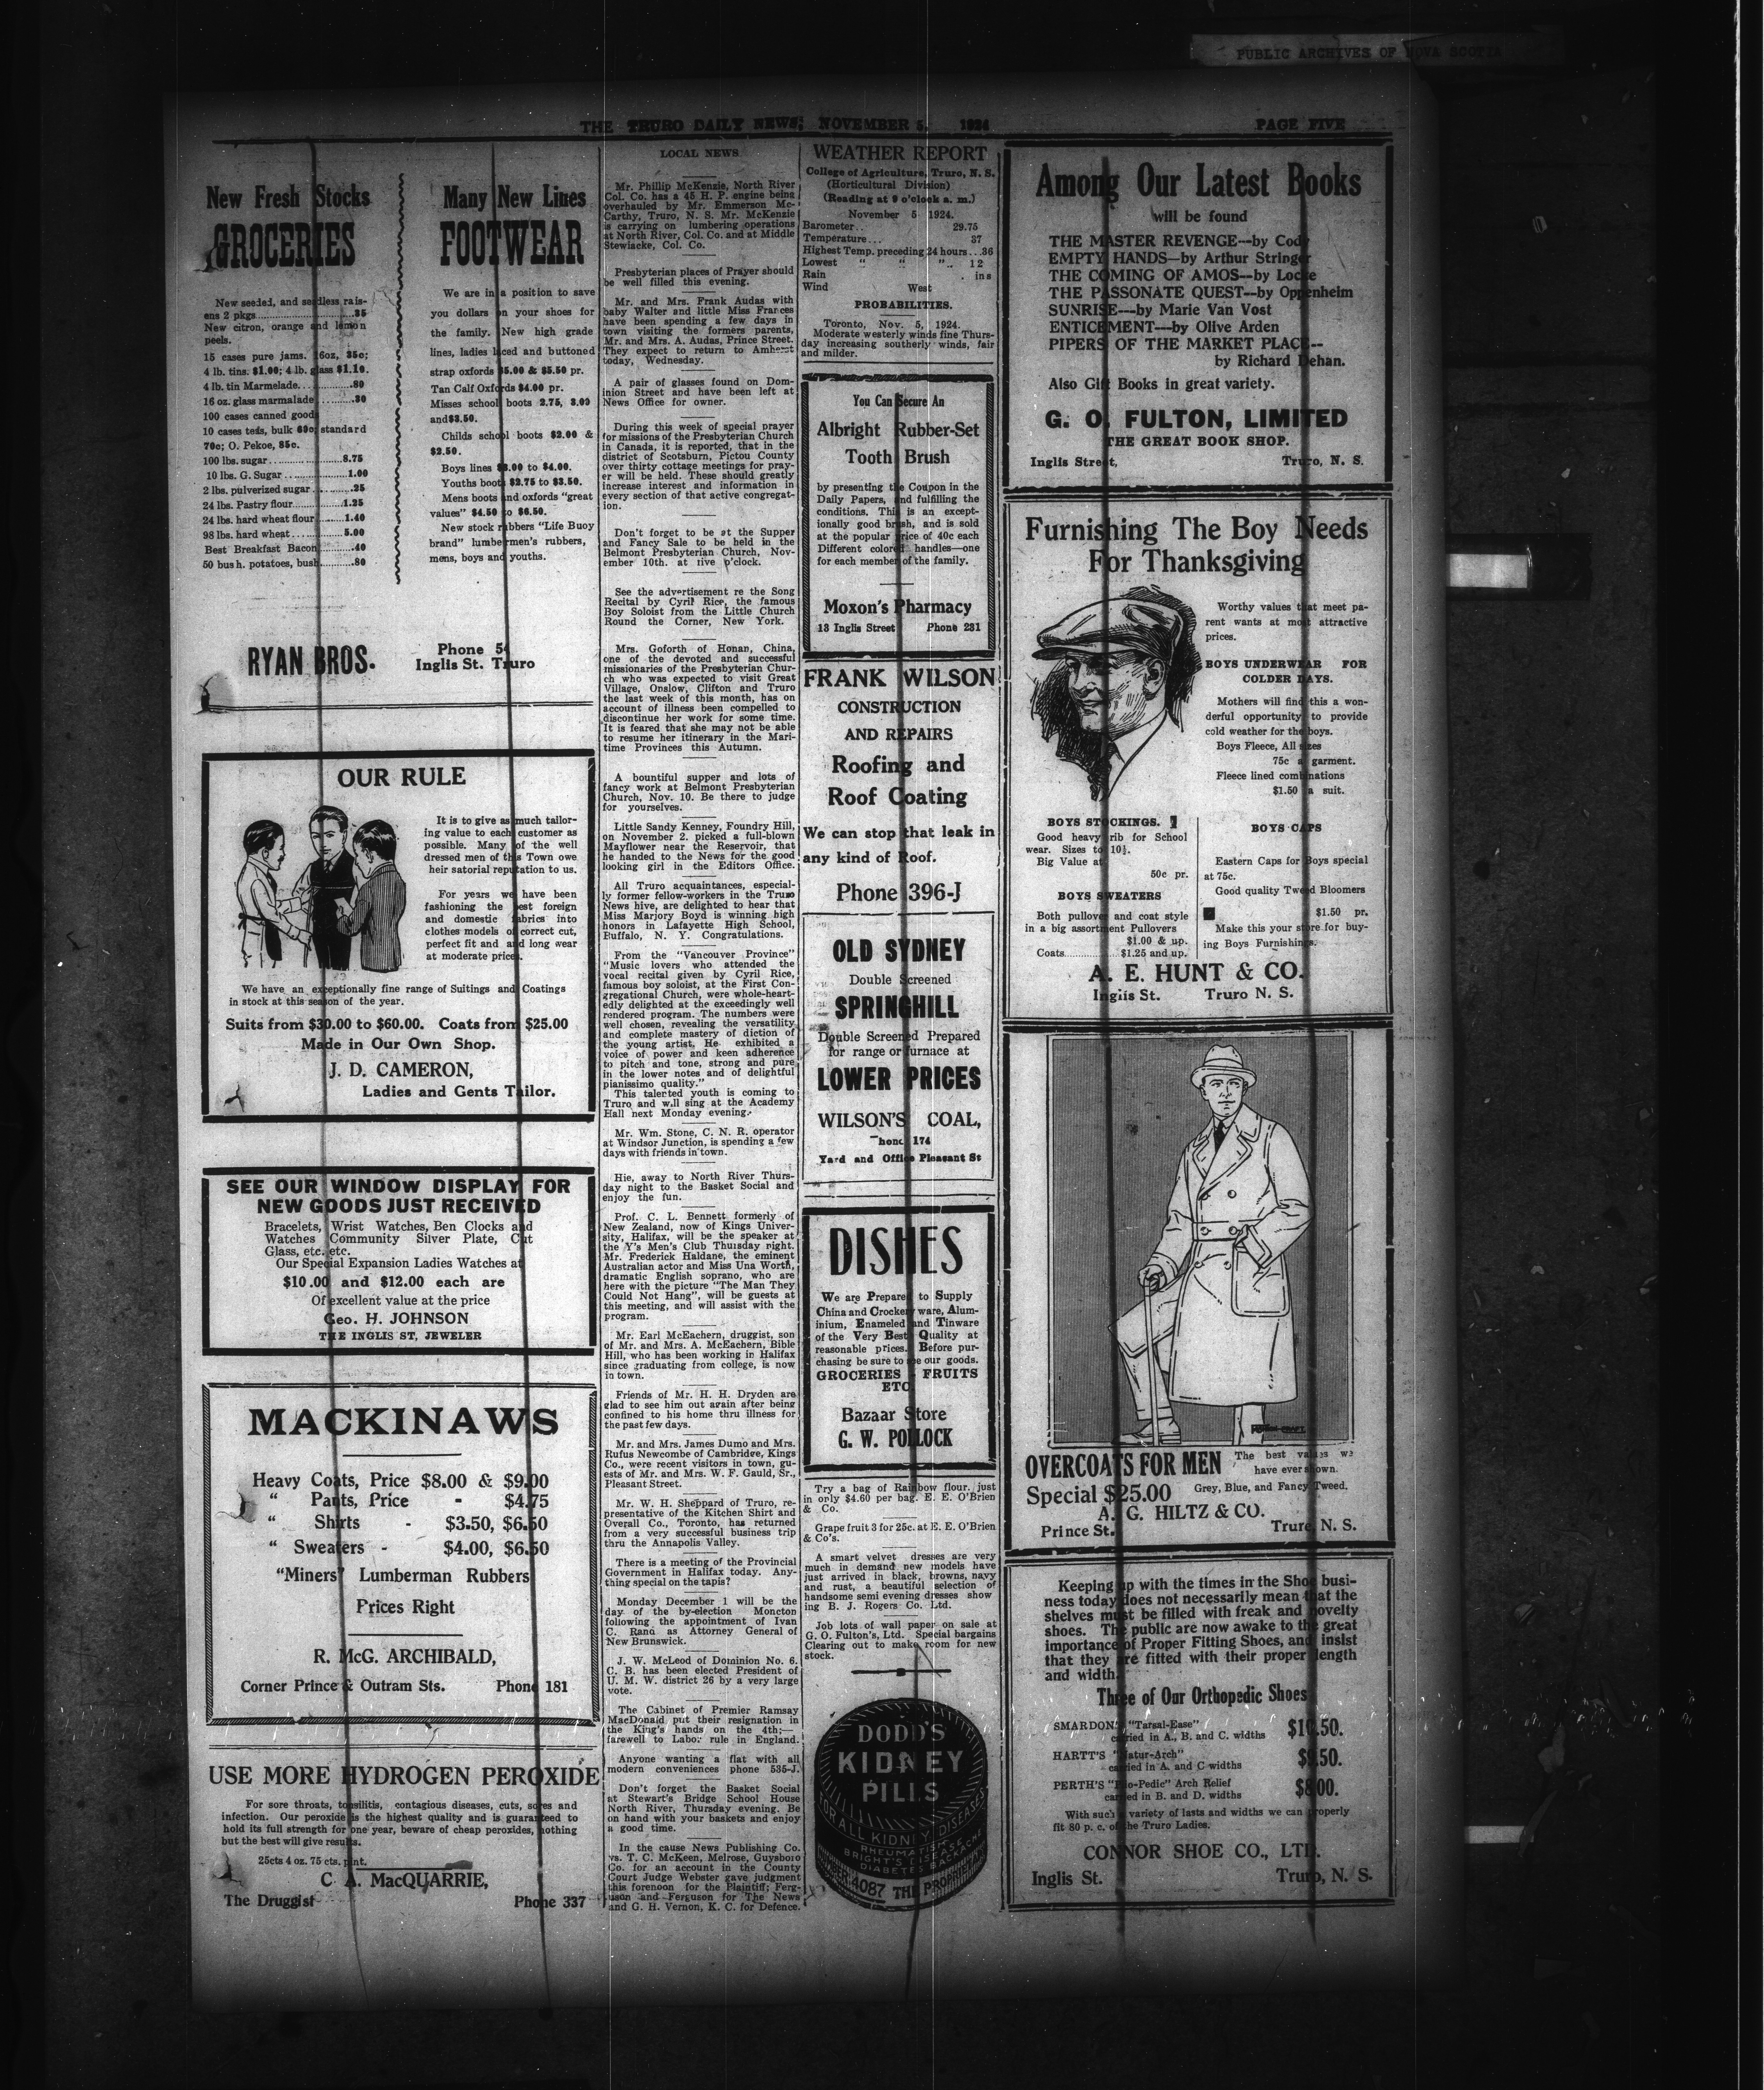 PUBLIC ARCHIVES OF NOVA SCOTIA
THE TRURO DAILY NEWS, NOVEMBER 5, 1924
PAGE FIVE
New Fresh Stocks
GROCERIES
New seeded, and seedless rais-
ens 2 pkgs..................35
New citron, orange and lemon
peels.
15 cases pure jams. 16oz, 35c;
4 lb. tins. $1.00; 4 lb. glass $1.10.
4 lb. tin Marmelade............80
16 oz. glass marmalade..........30
100 cases canned goods
10 cases teas, bulk 69c; standard
70c; O. Pekoe, 85c.
100 lbs. sugar................8.75
10 lbs. G. Sugar..............1.00
2 lbs. pulverized sugar..........25
24 lbs. Pastry flour..........1.25
24 lbs. hard wheat flour......1.40
98 lbs. hard wheat............5.00
Best Breakfast Bacon..........40
50 bush. potatoes, bush.........80
Many New Lines
FOOTWEAR
We are in a position to save
you dollars on your shoes for
the family. New high grade
lines, ladies laced and buttoned
strap oxfords $5.00 & $5.50 pr.
Tan Calf Oxfords $4.00 pr.
Misses school boots 2.75, 3.00
and $3.50.
Childs school boots $2.00 &
$2.50.
Boys lines $3.00 to $4.00.
Youths boots $2.75 to $3.50.
Mens boots and oxfords "great
values" $4.50 to $6.50.
New stock rubbers "Life Buoy
brand" lumbermen's rubbers,
mens, boys and youths.
RYAN BROS.
Phone 54
Inglis St. Truro
OUR RULE
It is to give as much tailor-
ing value to each customer as
possible. Many of the well
dressed men of this Town owe
heir satorial reputation to us.
For years we have been
fashioning the best foreign
and domestic fabrics into
clothes models of correct cut,
perfect fit and and long wear
at moderate prices.
We have an exceptionally fine range of Suitings and Coatings
in stock at this season of the year.
Suits from $30.00 to $60.00. Coats from $25.00
Made in Our Own Shop.
J. D. CAMERON,
Ladies and Gents Tailor.
SEE OUR WINDOW DISPLAY FOR
NEW GOODS JUST RECEIVED
Bracelets, Wrist Watches, Ben Clocks and
Watches Community Silver Plate, Cut
Glass, etc. etc.
Our Special Expansion Ladies Watches at
$10.00 and $12.00 each are
Of excellent value at the price
Geo. H. JOHNSON
THE INGLIS ST, JEWELER
MACKINAWS
Heavy Coats, Price $8.00 & $9.00
" Pants, Price - $4.75
" Shirts - $3.50, $6.50
" Sweaters - $4.00, $6.50
"Miners" Lumberman Rubbers
Prices Right
R. McG. ARCHIBALD,
Corner Prince & Outram Sts. Phone 181
USE MORE HYDROGEN PEROXIDE
For sore throats, tonsilitis, contagious diseases, cuts, sores and
infection. Our peroxide is the highest quality and is guaranteed to
hold its full strength for one year, beware of cheap peroxides, nothing
but the best will give results.
25cts 4 oz. 75 cts. pint.
C. A. MacQUARRIE,
The Druggist Phone 337
LOCAL NEWS
Mr. Phillip McKenzie, North River
Col. Co. has a 45 H. P. engine being
overhauled by Mr. Emmerson Mc-
Carthy, Truro, N. S. Mr. McKenzie
is carrying on lumbering operations
at North River, Col. Co. and at Middle
Stewiacke, Col. Co.
Presbyterian places of Prayer should
be well filled this evening.
Mr. and Mrs. Frank Audas with
baby Walter and little Miss Frances
have been spending a few days in
town visiting the formers parents,
Mr. and Mrs. A. Audas, Prince Street.
They expect to return to Amherst
today, Wednesday.
A pair of glasses found on Dom-
inion Street and have been left at
News Office for owner.
During this week of special prayer
for missions of the Presbyterian Church
in Canada, it is reported, that in the
district of Scotsburn, Pictou County
over thirty cottage meetings for pray-
er will be held. These should greatly
increase interest and information in
every section of that active congregat-
ion.
Don't forget to be at the Supper
and Fancy Sale to be held in the
Belmont Presbyterian Church, Nov-
ember 10th. at five o'clock.
See the advertisement re the Song
Recital by Cyril Rice, the famous
Boy Soloist from the Little Church
Round the Corner, New York.
Mrs. Goforth of Honan, China,
one of the devoted and successful
missionaries of the Presbyterian Chur-
ch who was expected to visit Great
Village, Onslow, Clifton and Truro
the last week of this month, has on
account of illness been compelled to
discontinue her work for some time.
It is feared that she may not be able
to resume her itinerary in the Mari-
time Provinces this Autumn.
A bountiful supper and lots of
fancy work at Belmont Presbyterian
Church, Nov. 10. Be there to judge
for yourselves.
Little Sandy Kenney, Foundry Hill,
on November 2. picked a full-blown
Mayflower near the Reservoir, that
he handed to the News for the good
looking girl in the Editors Office.
All Truro acquaintances, especial-
ly former fellow-workers in the Truro
News hive, are delighted to hear that
Miss Marjory Boyd is winning high
honors in Lafayette High School,
Buffalo, N. Y. Congratulations.
From the "Vancouver Province"
"Music lovers who attended the
vocal recital given by Cyril Rice,
famous boy soloist, at the First Con-
gregational Church, were whole-heart-
edly delighted at the exceedingly well
rendered program. The numbers were
well chosen, revealing the versatility
and complete mastery of diction of
the young artist. He exhibited a
voice of power and keen adherence
to pitch and tone, strong and pure
in the lower notes and of delightful
pianissimo quality."
This talented youth is coming to
Truro and will sing at the Academy
Hall next Monday evening.
Mr. Wm. Stone, C. N. R. operator
at Windsor Junction, is spending a few
days with friends in town.
Hie, away to North River Thurs-
day night to the Basket Social and
enjoy the fun.
Prof. C. L. Bennett formerly of
New Zealand, now of Kings Univer-
sity, Halifax, will be the speaker at
the Y's Men's Club Thursday night.
Mr. Frederick Haldane, the eminent
Australian actor and Miss Una Worth,
dramatic English soprano, who are
here with the picture "The Man They
Could Not Hang", will be guests at
this meeting, and will assist with the
program.
Mr. Earl McEachern, druggist, son
of Mr. and Mrs. A. McEachern, Bible
Hill, who has been working in Halifax
since graduating from college, is now
in town.
Friends of Mr. H. H. Dryden are
glad to see him out again after being
confined to his home thru illness for
the past few days.
Mr. and Mrs. James Dumo and Mrs.
Rufus Newcombe of Cambridge, Kings
Co., were recent visitors in town, gu-
ests of Mr. and Mrs. W. F. Gauld, Sr.,
Pleasant Street.
Mr. W. H. Sheppard of Truro, re-
presentative of the Kitchen Shirt and
Overall Co., Toronto, has returned
from a very successful business trip
thru the Annapolis Valley.
There is a meeting of the Provincial
Government in Halifax today. Any-
thing special on the tapis?
Monday December 1 will be the
day of the by-election Moncton
following the appointment of Ivan
C. Rand as Attorney General of
New Brunswick.
J. W. McLeod of Dominion No. 6.
C. B. has been elected President of
U. M. W. district 26 by a very large
vote.
The Cabinet of Premier Ramsay
MacDonald put their resignation in
the King's hands on the 4th;—
farewell to Labor rule in England.
Anyone wanting a flat with all
modern conveniences phone 535-J.
Don't forget the Basket Social
at Stewart's Bridge School House
North River, Thursday evening. Be
on hand with your baskets and enjoy
a good time.
In the cause News Publishing Co.
vs. T. C. McKeen, Melrose, Guysboro
Co. for an account in the County
Court Judge Webster gave judgment
this forenoon for the Plaintiff; Ferg-
uson and Ferguson for The News
and G. H. Vernon, K. C. for Defence.
WEATHER REPORT
College of Agriculture, Truro, N. S.
(Horticultural Division)
(Reading at 9 o'clock a. m.)
November 5 1924.
Barometer.. 29.75
Temperature... 37
Highest Temp. preceding 24 hours...36
Lowest " " ".. 12
Rain . ins
Wind West
PROBABILITIES.
Toronto, Nov. 5, 1924.
Moderate westerly winds fine Thurs-
day increasing southerly winds, fair
and milder.
You Can Secure An
Albright Rubber-Set
Tooth Brush
by presenting the Coupon in the
Daily Papers, and fulfilling the
conditions. This is an except-
ionally good brush, and is sold
at the popular price of 40c each
Different colored handles—one
for each member of the family.
Moxon's Pharmacy
13 Inglis Street Phone 231
FRANK WILSON
CONSTRUCTION
AND REPAIRS
Roofing and
Roof Coating
We can stop that leak in
any kind of Roof.
Phone 396-J
OLD SYDNEY
Double Screened
SPRINGHILL
Double Screened Prepared
for range or furnace at
LOWER PRICES
WILSON'S COAL,
Phone 174
Yard and Office Pleasant St
DISHES
We are Prepared to Supply
China and Crockery ware, Alum-
inium, Enameled and Tinware
of the Very Best Quality at
reasonable prices. Before pur-
chasing be sure to see our goods.
GROCERIES - FRUITS
ETC
Bazaar Store
G. W. POLLOCK
Try a bag of Rainbow flour. just
in only $4.60 per bag. E. E. O'Brien
& Co.
Grape fruit 3 for 25c. at E. E. O'Brien
& Co's.
A smart velvet dresses are very
much in demand new models have
just arrived in black, browns, navy
and rust, a beautiful selection of
handsome semi evening dresses show
ing B. J. Rogers Co. Ltd.
Job lots of wall paper on sale at
G. O. Fulton's, Ltd. Special bargains
Clearing out to make room for new
stock.
DODD'S
KIDNEY
PILLS
FOR ALL KIDNEY DISEASES
RHEUMATISM
BRIGHT'S DISEASE
DIABETES BACKACHE
NUMBER 4087 THE PROPRIETARY
Among Our Latest Books
will be found
THE MASTER REVENGE---by Cody
EMPTY HANDS—by Arthur Stringer
THE COMING OF AMOS---by Locke
THE PASSONATE QUEST--by Oppenheim
SUNRISE---by Marie Van Vost
ENTICEMENT---by Olive Arden
PIPERS OF THE MARKET PLACE--
by Richard Dehan.
Also Gift Books in great variety.
G. O. FULTON, LIMITED
THE GREAT BOOK SHOP.
Inglis Street, Truro, N. S.
Furnishing The Boy Needs
For Thanksgiving
Worthy values that meet pa-
rent wants at most attractive
prices.
BOYS UNDERWEAR FOR
COLDER DAYS.
Mothers will find this a won-
derful opportunity to provide
cold weather for the boys.
Boys Fleece, All sizes
75c a garment.
Fleece lined combinations
$1.50 a suit.
BOYS STOCKINGS.
Good heavy rib for School
wear. Sizes to 10½.
Big Value at
50c pr.
BOYS SWEATERS
Both pullover and coat style
in a big assortment Pullovers
$1.00 & up.
Coats...............$1.25 and up.
BOYS CAPS
Eastern Caps for Boys special
at 75c.
Good quality Tweed Bloomers
$1.50 pr.
Make this your store for buy-
ing Boys Furnishings.
A. E. HUNT & CO.
Inglis St. Truro N. S.
OVERCOATS FOR MEN
The best values we
have ever shown.
Special $25.00
Grey, Blue, and Fancy Tweed.
A. G. HILTZ & CO.
Prince St. Truro, N. S.
Keeping up with the times in the Shoe busi-
ness today does not necessarily mean that the
shelves must be filled with freak and novelty
shoes. The public are now awake to the great
importance of Proper Fitting Shoes, and insist
that they are fitted with their proper length
and width.
Three of Our Orthopedic Shoes
SMARDON'S "Tarsal-Ease"
carried in A., B. and C. widths $10.50.
HARTT'S "Natur-Arch"
carried in A. and C widths $9.50.
PERTH'S "Pedic" Arch Relief
carried in B. and D. widths $8.00.
With such variety of lasts and widths we can properly
fit 80 p. c. of the Truro Ladies.
CONNOR SHOE CO., LTD.
Inglis St. Truro, N. S.